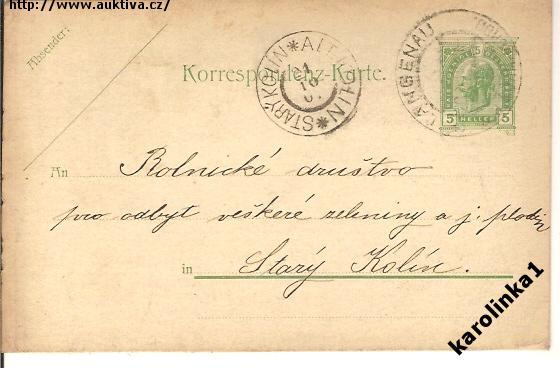 http://www.auktiva.cz/
Absender:
Korrespondenz-Karte.
STARÝ KOLIN * ALT KOLIN *
LANGENAU
5 5
HELLER
An Rolnické družstvo
pro odbyt veškeré zeleniny a j. plodin
in Starý Kolín.
karolinka1